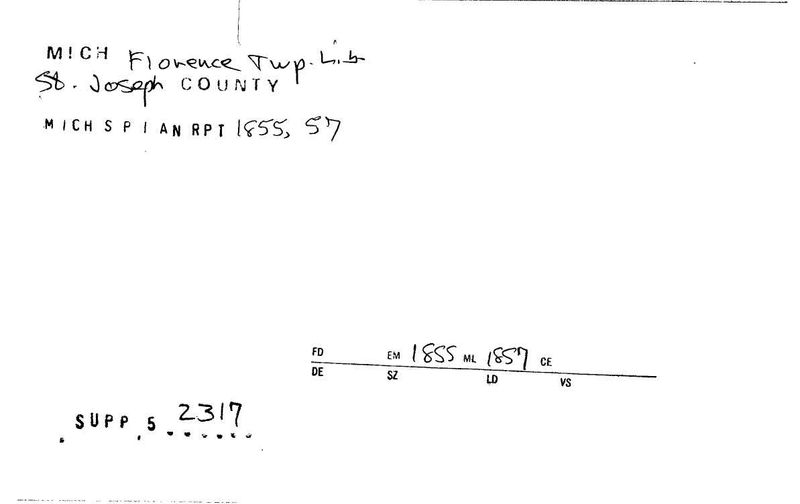 MICH Florence Twp. Lib
St. Joseph COUNTY
MICH S P I AN RPT 1855, 57
FD EM 1855 ML 1857 CE
DE SZ LD VS
SUPP 5 2317